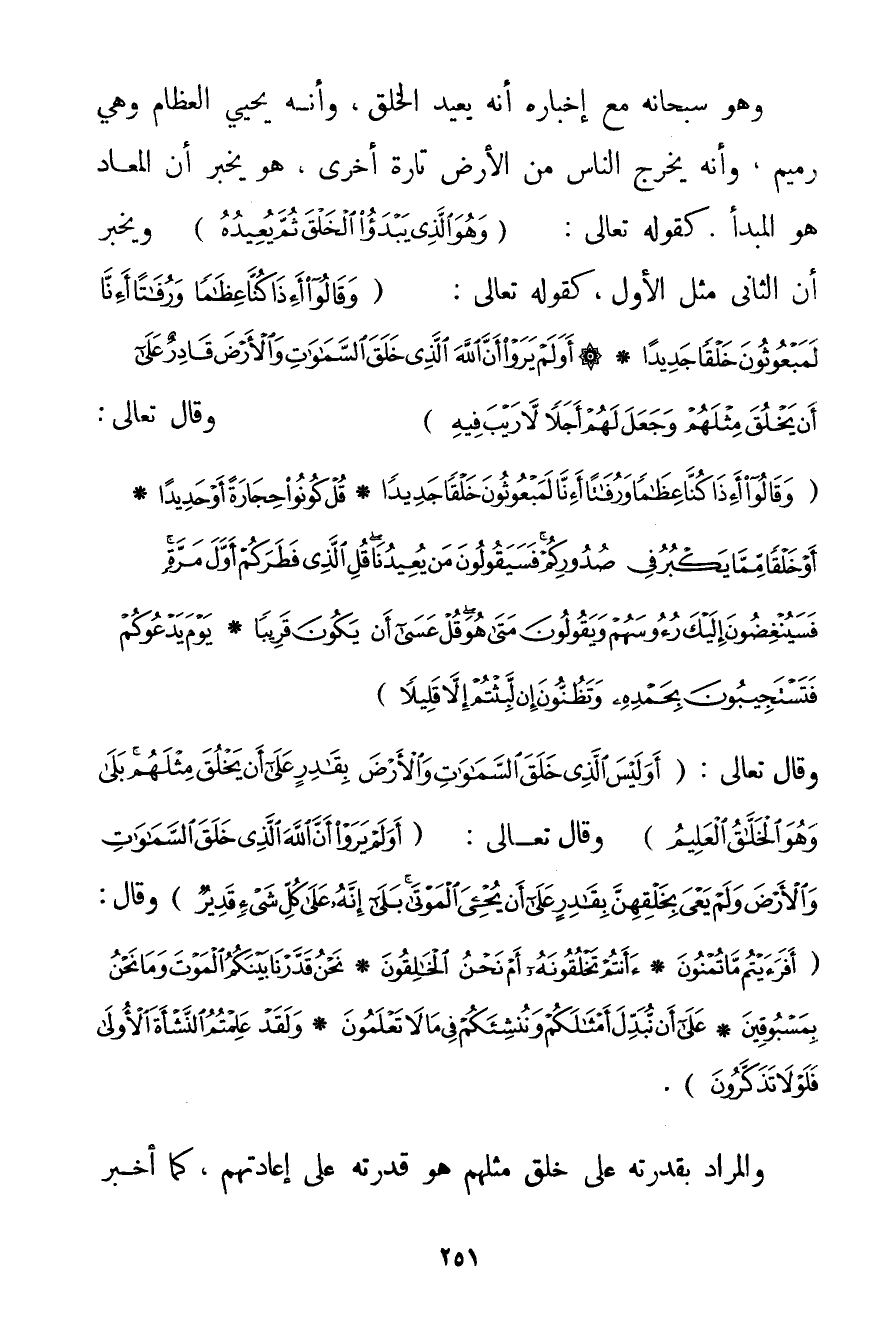 وهو سبحانه مع إخباره أنه يعيد الخلق ، وأنــه يحيي العظام وهي
رميم ، وأنه يخرج الناس من الأرض تارة أخرى ، هو يخبر أن المعـاد
هو المبدأ . كقوله تعالى : ( وَهُوَ ٱلَّذِى يَبْدَؤُا۟ ٱلْخَلْقَ ثُمَّ يُعِيدُهُ ) ويخبر
أن الثانى مثل الأول ، كقوله تعالى : ( وَقَالُوٓا۟ أَءِذَا كُنَّا عِظَٰمًا وَرُفَٰتًا أَءِنَّا
لَمَبْعُوثُونَ خَلْقًا جَدِيدًا * ۞ أَوَلَمْ يَرَوْا۟ أَنَّ ٱللَّهَ ٱلَّذِى خَلَقَ ٱلسَّمَٰوَٰتِ وَٱلْأَرْضَ قَادِرٌ عَلَىٰٓ
أَن يَخْلُقَ مِثْلَهُمْ وَجَعَلَ لَهُمْ أَجَلًا لَّا رَيْبَ فِيهِ ) وقال تعالى :
( وَقَالُوٓا۟ أَءِذَا كُنَّا عِظَٰمًا وَرُفَٰتًا أَءِنَّا لَمَبْعُوثُونَ خَلْقًا جَدِيدًا * قُلْ كُونُوا۟ حِجَارَةً أَوْ حَدِيدًا *
أَوْ خَلْقًا مِّمَّا يَكْبُرُ فِى صُدُورِكُمْ ۚ فَسَيَقُولُونَ مَن يُعِيدُنَا ۖ قُلِ ٱلَّذِى فَطَرَكُمْ أَوَّلَ مَرَّةٍ ۚ
فَسَيُنْغِضُونَ إِلَيْكَ رُءُوسَهُمْ وَيَقُولُونَ مَتَىٰ هُوَ ۖ قُلْ عَسَىٰٓ أَن يَكُونَ قَرِيبًا * يَوْمَ يَدْعُوكُمْ
فَتَسْتَجِيبُونَ بِحَمْدِهِۦ وَتَظُنُّونَ إِن لَّبِثْتُمْ إِلَّا قَلِيلًا )
وقال تعالى : ( أَوَلَيْسَ ٱلَّذِى خَلَقَ ٱلسَّمَٰوَٰتِ وَٱلْأَرْضَ بِقَٰدِرٍ عَلَىٰٓ أَن يَخْلُقَ مِثْلَهُم ۚ بَلَىٰ
وَهُوَ ٱلْخَلَّٰقُ ٱلْعَلِيمُ ) وقال تعـــالى : ( أَوَلَمْ يَرَوْا۟ أَنَّ ٱللَّهَ ٱلَّذِى خَلَقَ ٱلسَّمَٰوَٰتِ
وَٱلْأَرْضَ وَلَمْ يَعْىَ بِخَلْقِهِنَّ بِقَٰدِرٍ عَلَىٰٓ أَن يُحْۦِىَ ٱلْمَوْتَىٰ ۚ بَلَىٰٓ إِنَّهُۥ عَلَىٰ كُلِّ شَىْءٍ قَدِيرٌ ) وقال :
( أَفَرَءَيْتُم مَّا تُمْنُونَ * ءَأَنتُمْ تَخْلُقُونَهُۥٓ أَمْ نَحْنُ ٱلْخَٰلِقُونَ * نَحْنُ قَدَّرْنَا بَيْنَكُمُ ٱلْمَوْتَ وَمَا نَحْنُ
بِمَسْبُوقِينَ * عَلَىٰٓ أَن نُّبَدِّلَ أَمْثَٰلَكُمْ وَنُنشِئَكُمْ فِى مَا لَا تَعْلَمُونَ * وَلَقَدْ عَلِمْتُمُ ٱلنَّشْأَةَ ٱلْأُولَىٰ
فَلَوْلَا تَذَكَّرُونَ ) .
والمراد بقدرته على خلق مثلهم هو قدرته على إعادتهم ، كما أخــبر
٢٥١